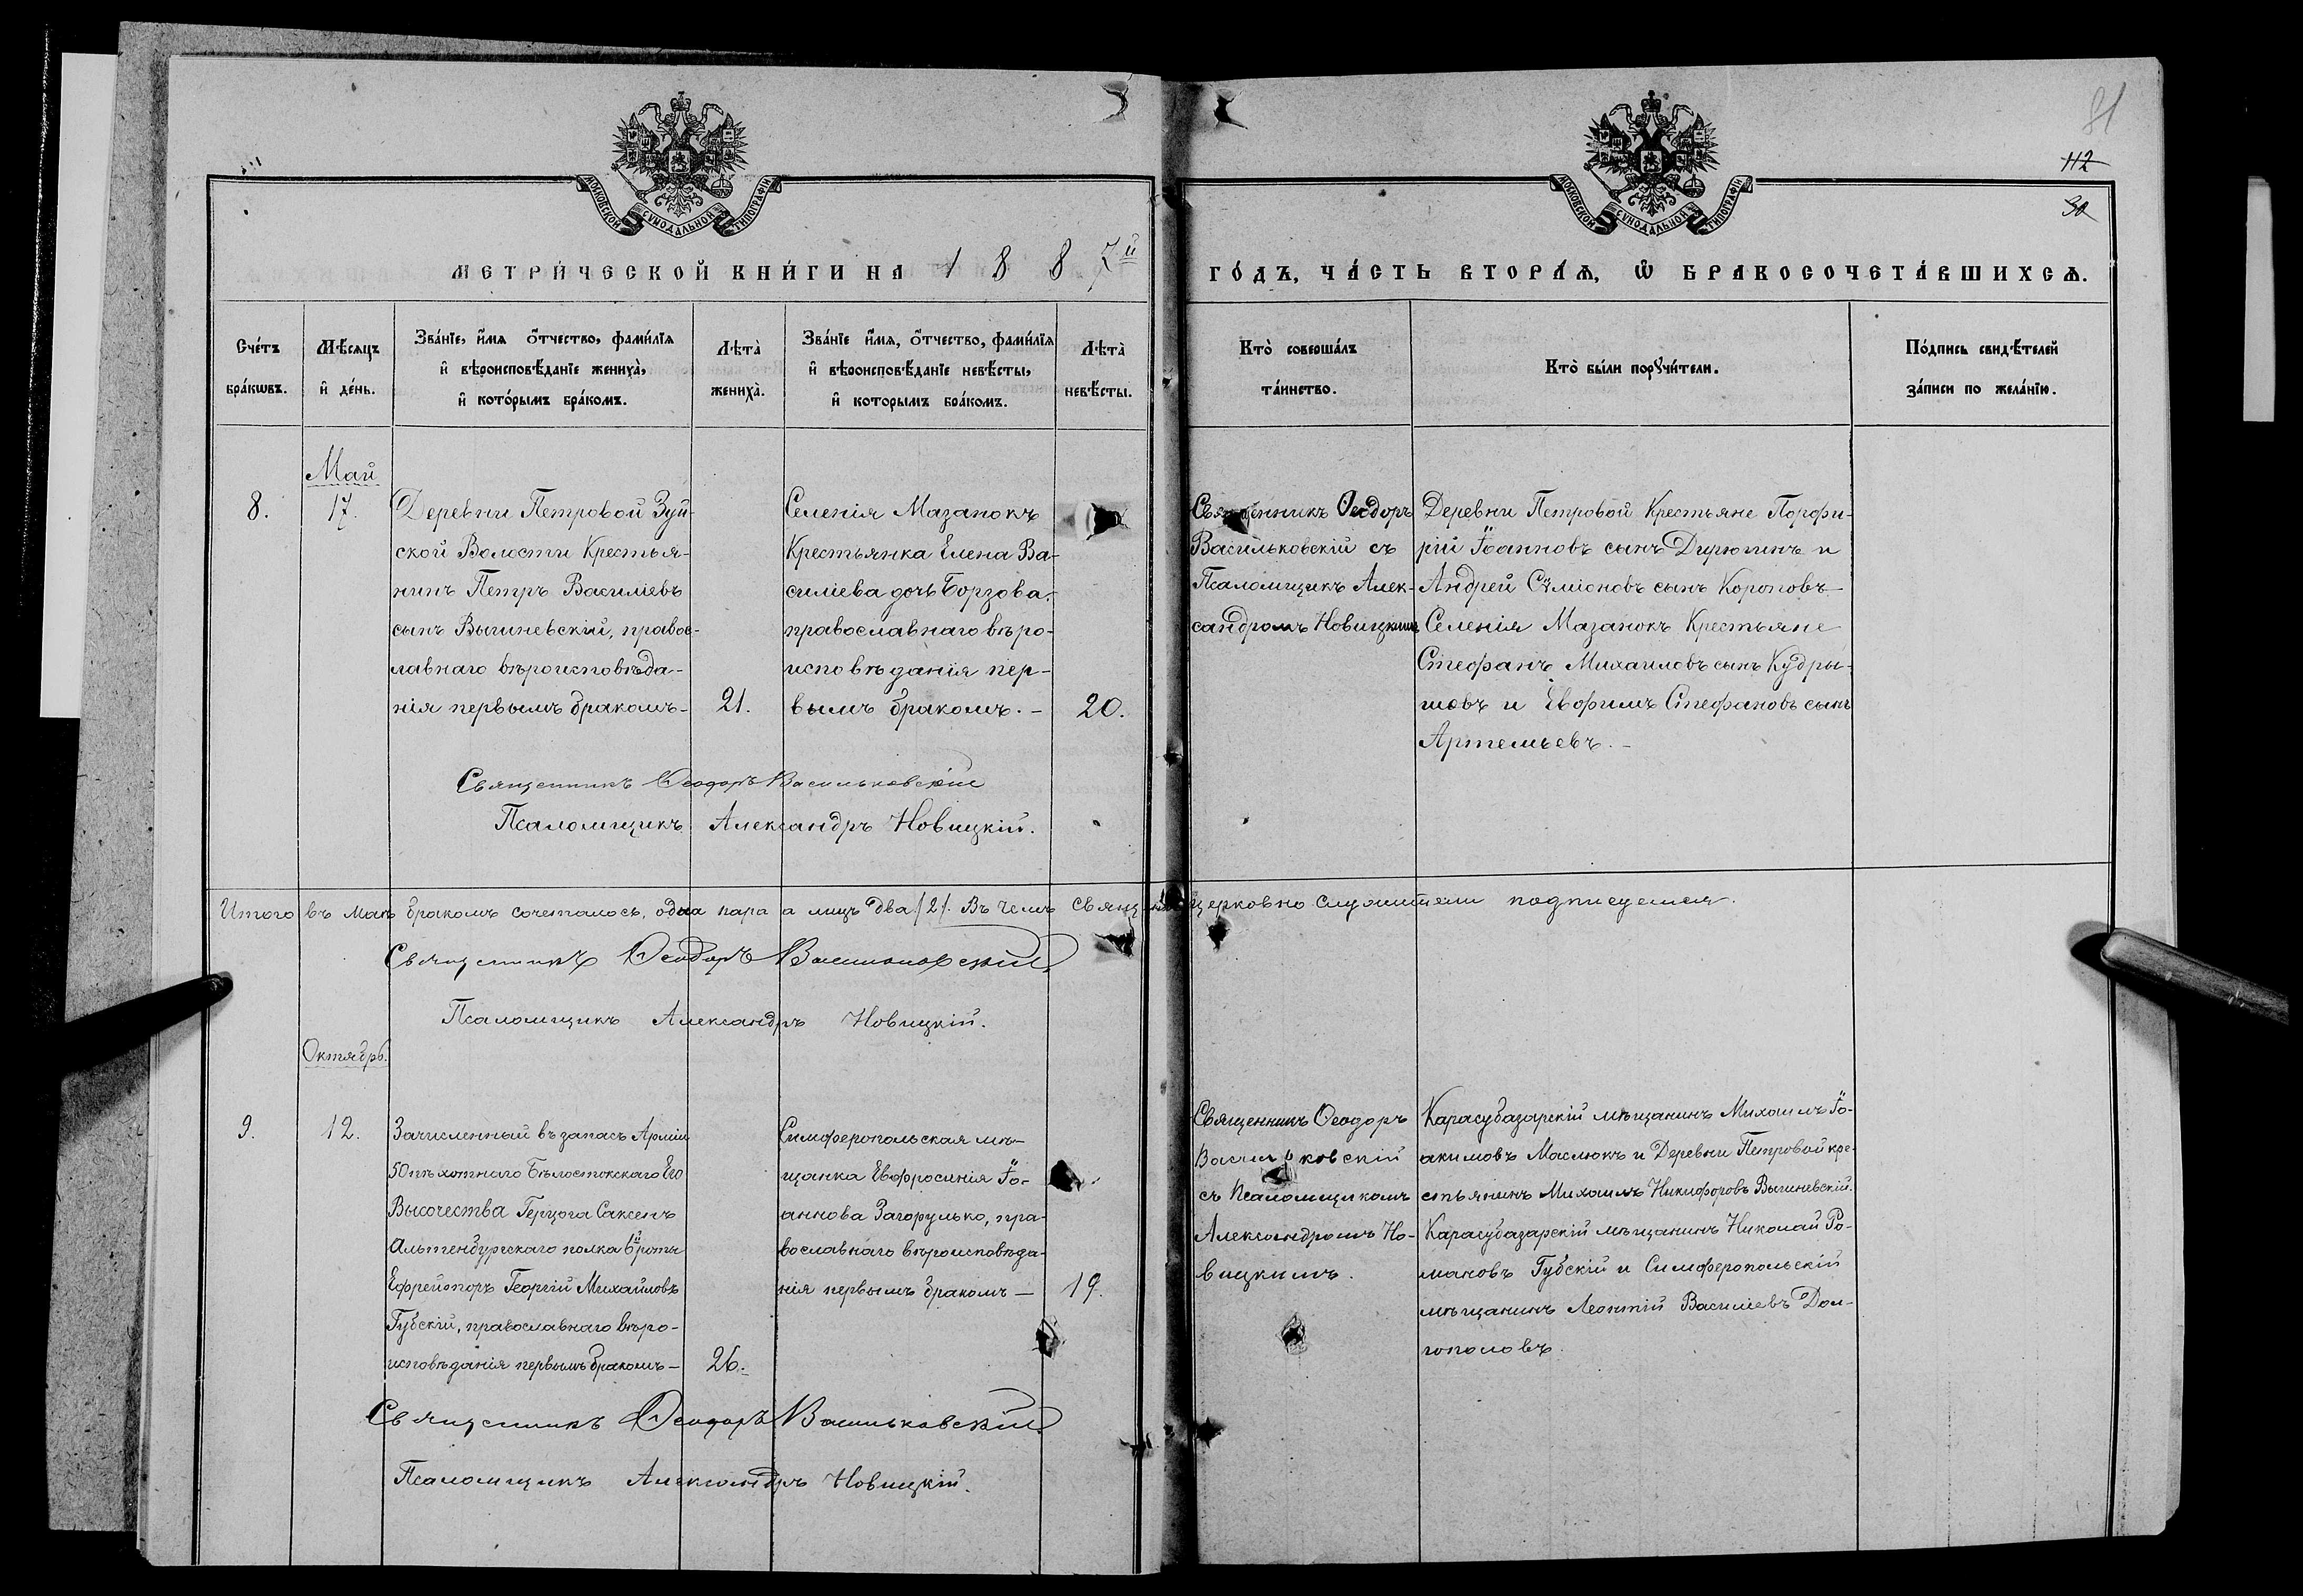 81
112
30
МОСКОВСКОЙ СѴНОДАЛЬНОЙ ТИПОГРАФІИ
МОСКОВСКОЙ СѴНОДАЛЬНОЙ ТИПОГРАФІИ
МЕТРИ́ЧЕСКОЙ КНИ́ГИ НА 1887й
ГО́ДЪ, ЧА́СТЬ ВТОРА́Ѧ, Ѡ҆ БРАКОСОЧЕТА́ВШИХСѦ.
Сче́тъ
бра́кѡвъ.
Мѣ́сѧцъ
и҆ де́нь.
Зва́нїе, и҆́мѧ ѻ҆́тчество, фами́лїѧ
и҆ вѣроисповѣ́данїе жениха̀,
и҆ кото́рымъ бра́комъ.
Лѣта̀
жениха̀.
Зва́нїе и҆́мѧ, ѻ҆́тчество, фами́лїѧ
и҆ вѣроисповѣ́данїе невѣ́сты,
и҆ которымъ бра́комъ.
Лѣта̀
невѣ́сты.
Кто̀ соверша́лъ
та́инство.
Кто̀ бы́ли порꙋчи́тели.
По́дпись свидѣ́телей
за́писи по жела́нїю.
Май
8.
17.
Деревни Петровой Зуй-
ской Волости Крестья-
нинъ Петръ Василіевъ
сынъ Вышневскій, правос-
лавнаго вѣроисповѣда-
нія первымъ бракомъ-
21.
Селенія Мазанокъ
Крестьянка Елена Ва-
силіева дочь Борзова.
православнаго вѣро-
исповѣданія пер-
вымъ бракомъ. -
20.
Священникъ Ѳеодоръ
Васильковскій съ
Псаломщикъ Алек-
сандромъ Новицкимъ
Деревни Петровой Крестьяне Порфи-
рій Іоанновъ сынъ Дирюгинъ и
Андрей Сѵміоновъ сынъ Короповъ
Селенія Мазанокъ Крестьяне
Стефанъ Михаиловъ сынъ Кудря-
шовъ и Евфимъ Стефановъ сынъ
Артемьевъ. -
Священникъ Ѳеодоръ Васильковскій
Псаломщикъ Александръ Новицкій.
Итого въ маѣ бракомъ сочеталось, одна пара а лицъ два /2/. Въ чемъ священно церковно служители подписуемся.
Священникъ Ѳеодоръ Васильковскій
Псаломщикъ Александръ Новицкій.
Октябрь.
9.
12.
Зачисленный въ запасъ Арміи
50 пѣхотнаго Бѣлостокскаго Его
Высочества Герцога Саксенъ
Альтенбургскаго полка 6й роты
Ефрейторъ Георгій Михайловъ
Губскій, православнаго вѣро-
исповѣданія первымъ бракомъ -
26.
Симферопольская мѣ-
щанка Евфросинія Іо-
аннова Загорулько, пра-
вославнаго вѣроисповѣда-
нія первымъ бракомъ -
19.
Священникъ Ѳеодоръ
Васильковскій
съ Псаломщикомъ
Александромъ Но-
вицкимъ.
Карасубазарскій мѣщанинъ Михаилъ Іо-
акимовъ Маслюкъ и Деревни Петровой кре-
стьянинъ Михаилъ Никифоровъ Вышневскій.
Карасубазарскій мѣщанинъ Николай Ро-
мановъ Губскій и Симферопольскій
мѣщанинъ Леонтій Василіевъ Дол-
гополовъ.
Священникъ Ѳеодоръ Васильковскій
Псаломщикъ Александръ Новицкій.